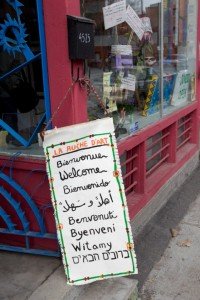 4525
LA RUCHE D'ART
Bienvenue
Welcome
Bienvenido
أهلاً وسهلاً
Benvenuti
Byenveni
Witamy
ברוכים הבאים